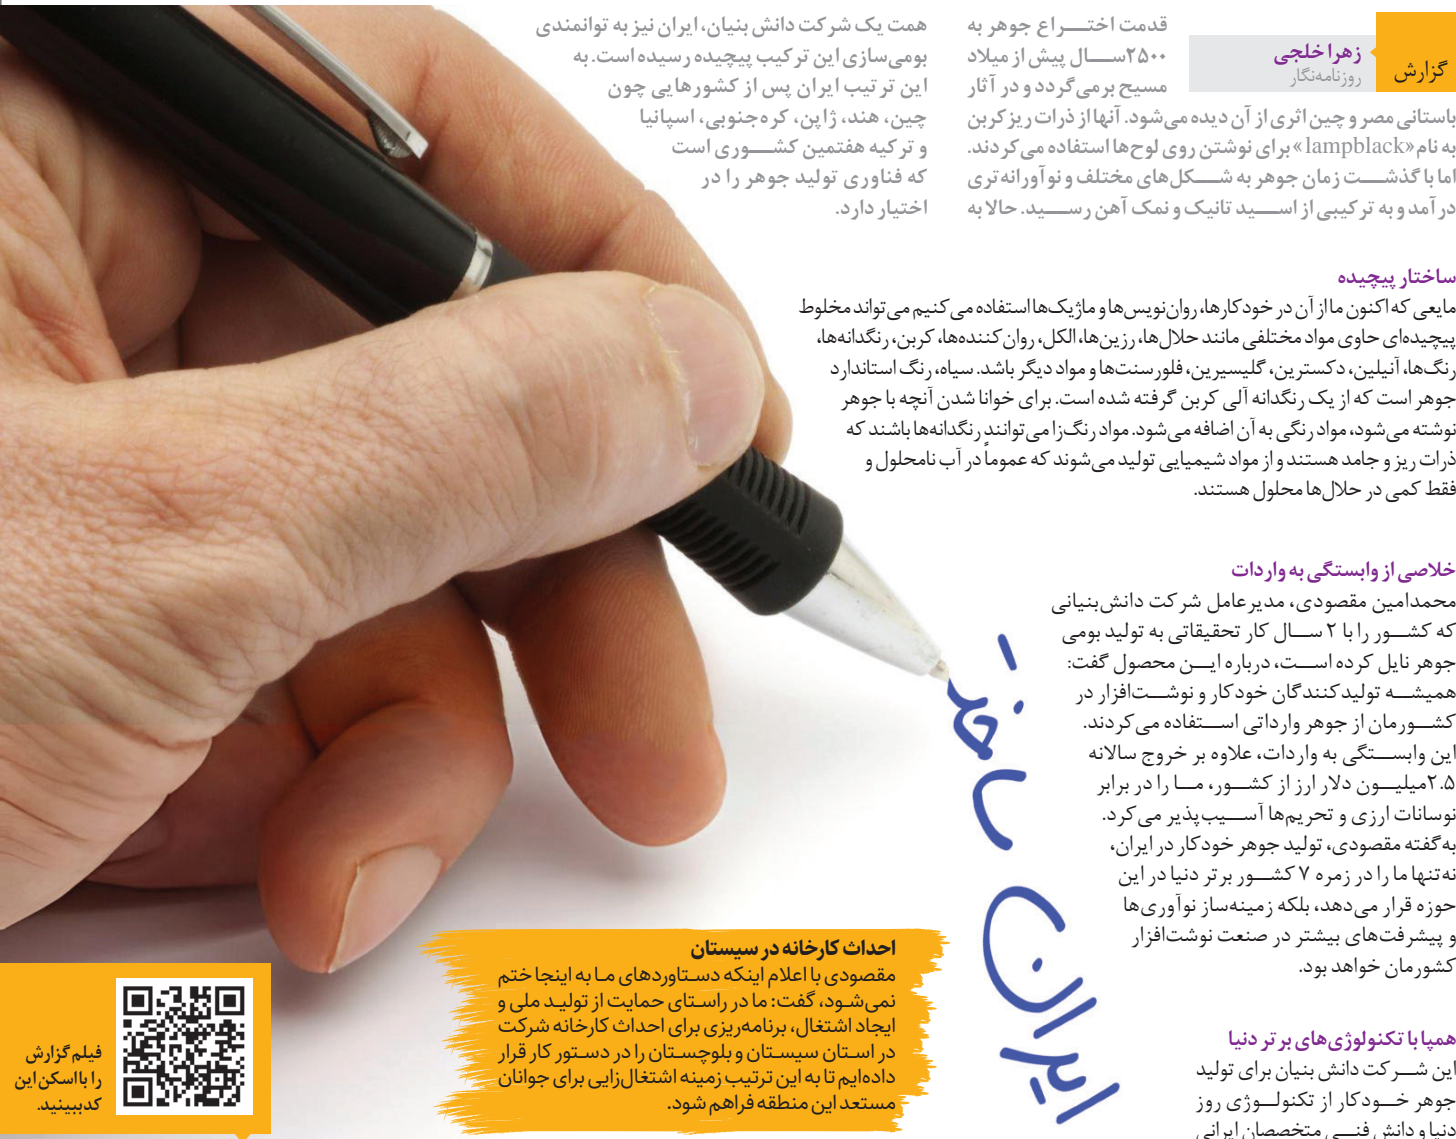 گزارش
زهرا خلجی
روزنامه‌نگار
قدمت اختراع جوهر به
۲۵۰۰سال پیش از میلاد
مسیح برمی‌گردد و در آثار
باستانی مصر و چین اثری از آن دیده می‌شود. آنها از ذرات ریز کربن
به نام «lampblack» برای نوشتن روی لوح‌ها استفاده می‌کردند.
اما با گذشت زمان جوهر به شکل‌های مختلف و نوآورانه‌تری
درآمد و به ترکیبی از اسید تانیک و نمک آهن رسید. حالا به
همت یک شرکت دانش بنیان، ایران نیز به توانمندی
بومی‌سازی این ترکیب پیچیده رسیده است. به
این ترتیب ایران پس از کشورهایی چون
چین، هند، ژاپن، کره‌جنوبی، اسپانیا
و ترکیه هفتمین کشوری است
که فناوری تولید جوهر را در
اختیار دارد.
ساختار پیچیده
مایعی که اکنون ما از آن در خودکارها، روان‌نویس‌ها و ماژیک‌ها استفاده می‌کنیم می‌تواند مخلوط
پیچیده‌ای حاوی مواد مختلفی مانند حلال‌ها، رزین‌ها، الکل، روان‌کننده‌ها، کربن، رنگدانه‌ها،
رنگ‌ها، آنیلین، دکسترین، گلیسیرین، فلورسنت‌ها و مواد دیگر باشد. سیاه، رنگ استاندارد
جوهر است که از یک رنگدانه آلی کربن گرفته شده است. برای خوانا شدن آنچه با جوهر
نوشته می‌شود، مواد رنگی به آن اضافه می‌شود. مواد رنگ‌زا می‌توانند رنگدانه‌ها باشند که
ذرات ریز و جامد هستند و از مواد شیمیایی تولید می‌شوند که عموماً در آب نامحلول و
فقط کمی در حلال‌ها محلول هستند.
خلاصی از وابستگی به واردات
محمدامین مقصودی، مدیرعامل شرکت دانش‌بنیانی
که کشور را با ۲ سال کار تحقیقاتی به تولید بومی
جوهر نایل کرده است، درباره این محصول گفت:
همیشه تولیدکنندگان خودکار و نوشت‌افزار در
کشورمان از جوهر وارداتی استفاده می‌کردند.
این وابستگی به واردات، علاوه بر خروج سالانه
۲.۵میلیون دلار ارز از کشور، ما را در برابر
نوسانات ارزی و تحریم‌ها آسیب‌پذیر می‌کرد.
به‌گفته مقصودی، تولید جوهر خودکار در ایران،
نه‌تنها ما را در زمره ۷ کشور برتر دنیا در این
حوزه قرار می‌دهد، بلکه زمینه‌ساز نوآوری‌ها
و پیشرفت‌های بیشتر در صنعت نوشت‌افزار
کشورمان خواهد بود.
همپا با تکنولوژی‌های برتر دنیا
این شرکت دانش بنیان برای تولید
جوهر خودکار از تکنولوژی روز
دنیا و دانش فنی متخصصان ایرانی
ایران ساخت
احداث کارخانه در سیستان
مقصودی با اعلام اینکه دستاوردهای ما به اینجا ختم
نمی‌شود، گفت: ما در راستای حمایت از تولید ملی و
ایجاد اشتغال، برنامه‌ریزی برای احداث کارخانه شرکت
در استان سیستان و بلوچستان را در دستور کار قرار
داده‌ایم تا به این ترتیب زمینه اشتغال‌زایی برای جوانان
مستعد این منطقه فراهم شود.
فیلم گزارش
را با اسکن این
کد ببینید.